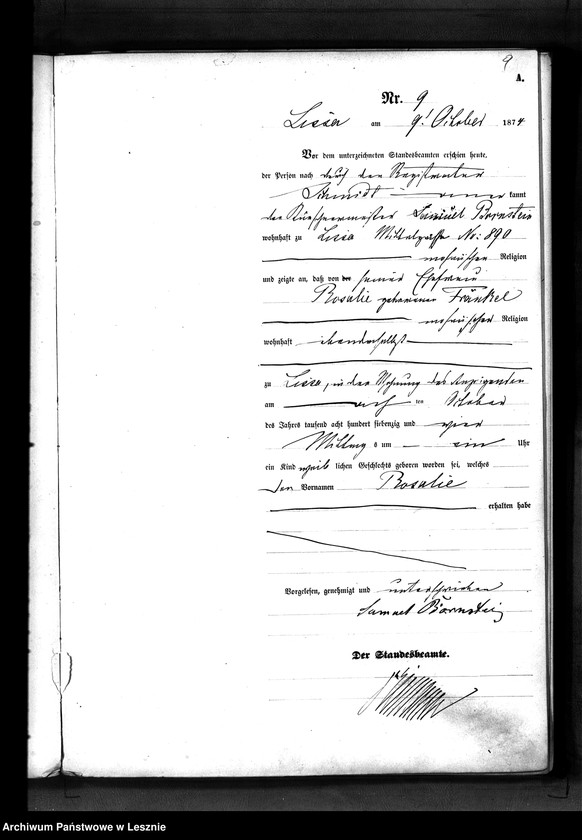 9
A.
Nr. 9
Lissa am 9t October 1874
Vor dem unterzeichneten Standesbeamten erschien heute,
der Person nach durch den Registrator
Schmidt kannt
der Kürschnermeister Samuel Bornstein
wohnhaft zu Lissa Mittelgasse No: 890
mosaischer Religion
und zeigte an, daß von der seiner Ehefrau
Rosalie geborenen Fränkel
mosaischer Religion
wohnhaft ebendaselbst
zu Lissa, in der Wohnung des Anzeigenden
am acht ten October
des Jahrs tausend acht hundert siebenzig und vier
Mittags um ein Uhr
ein Kind weib lichen Geschlechts geboren worden sei, welches
den Vornamen Rosalie
erhalten habe
Vorgelesen, genehmigt und unterschrieben
Samuel Bornstein
Der Standesbeamte.
Archiwum Państwowe w Lesznie